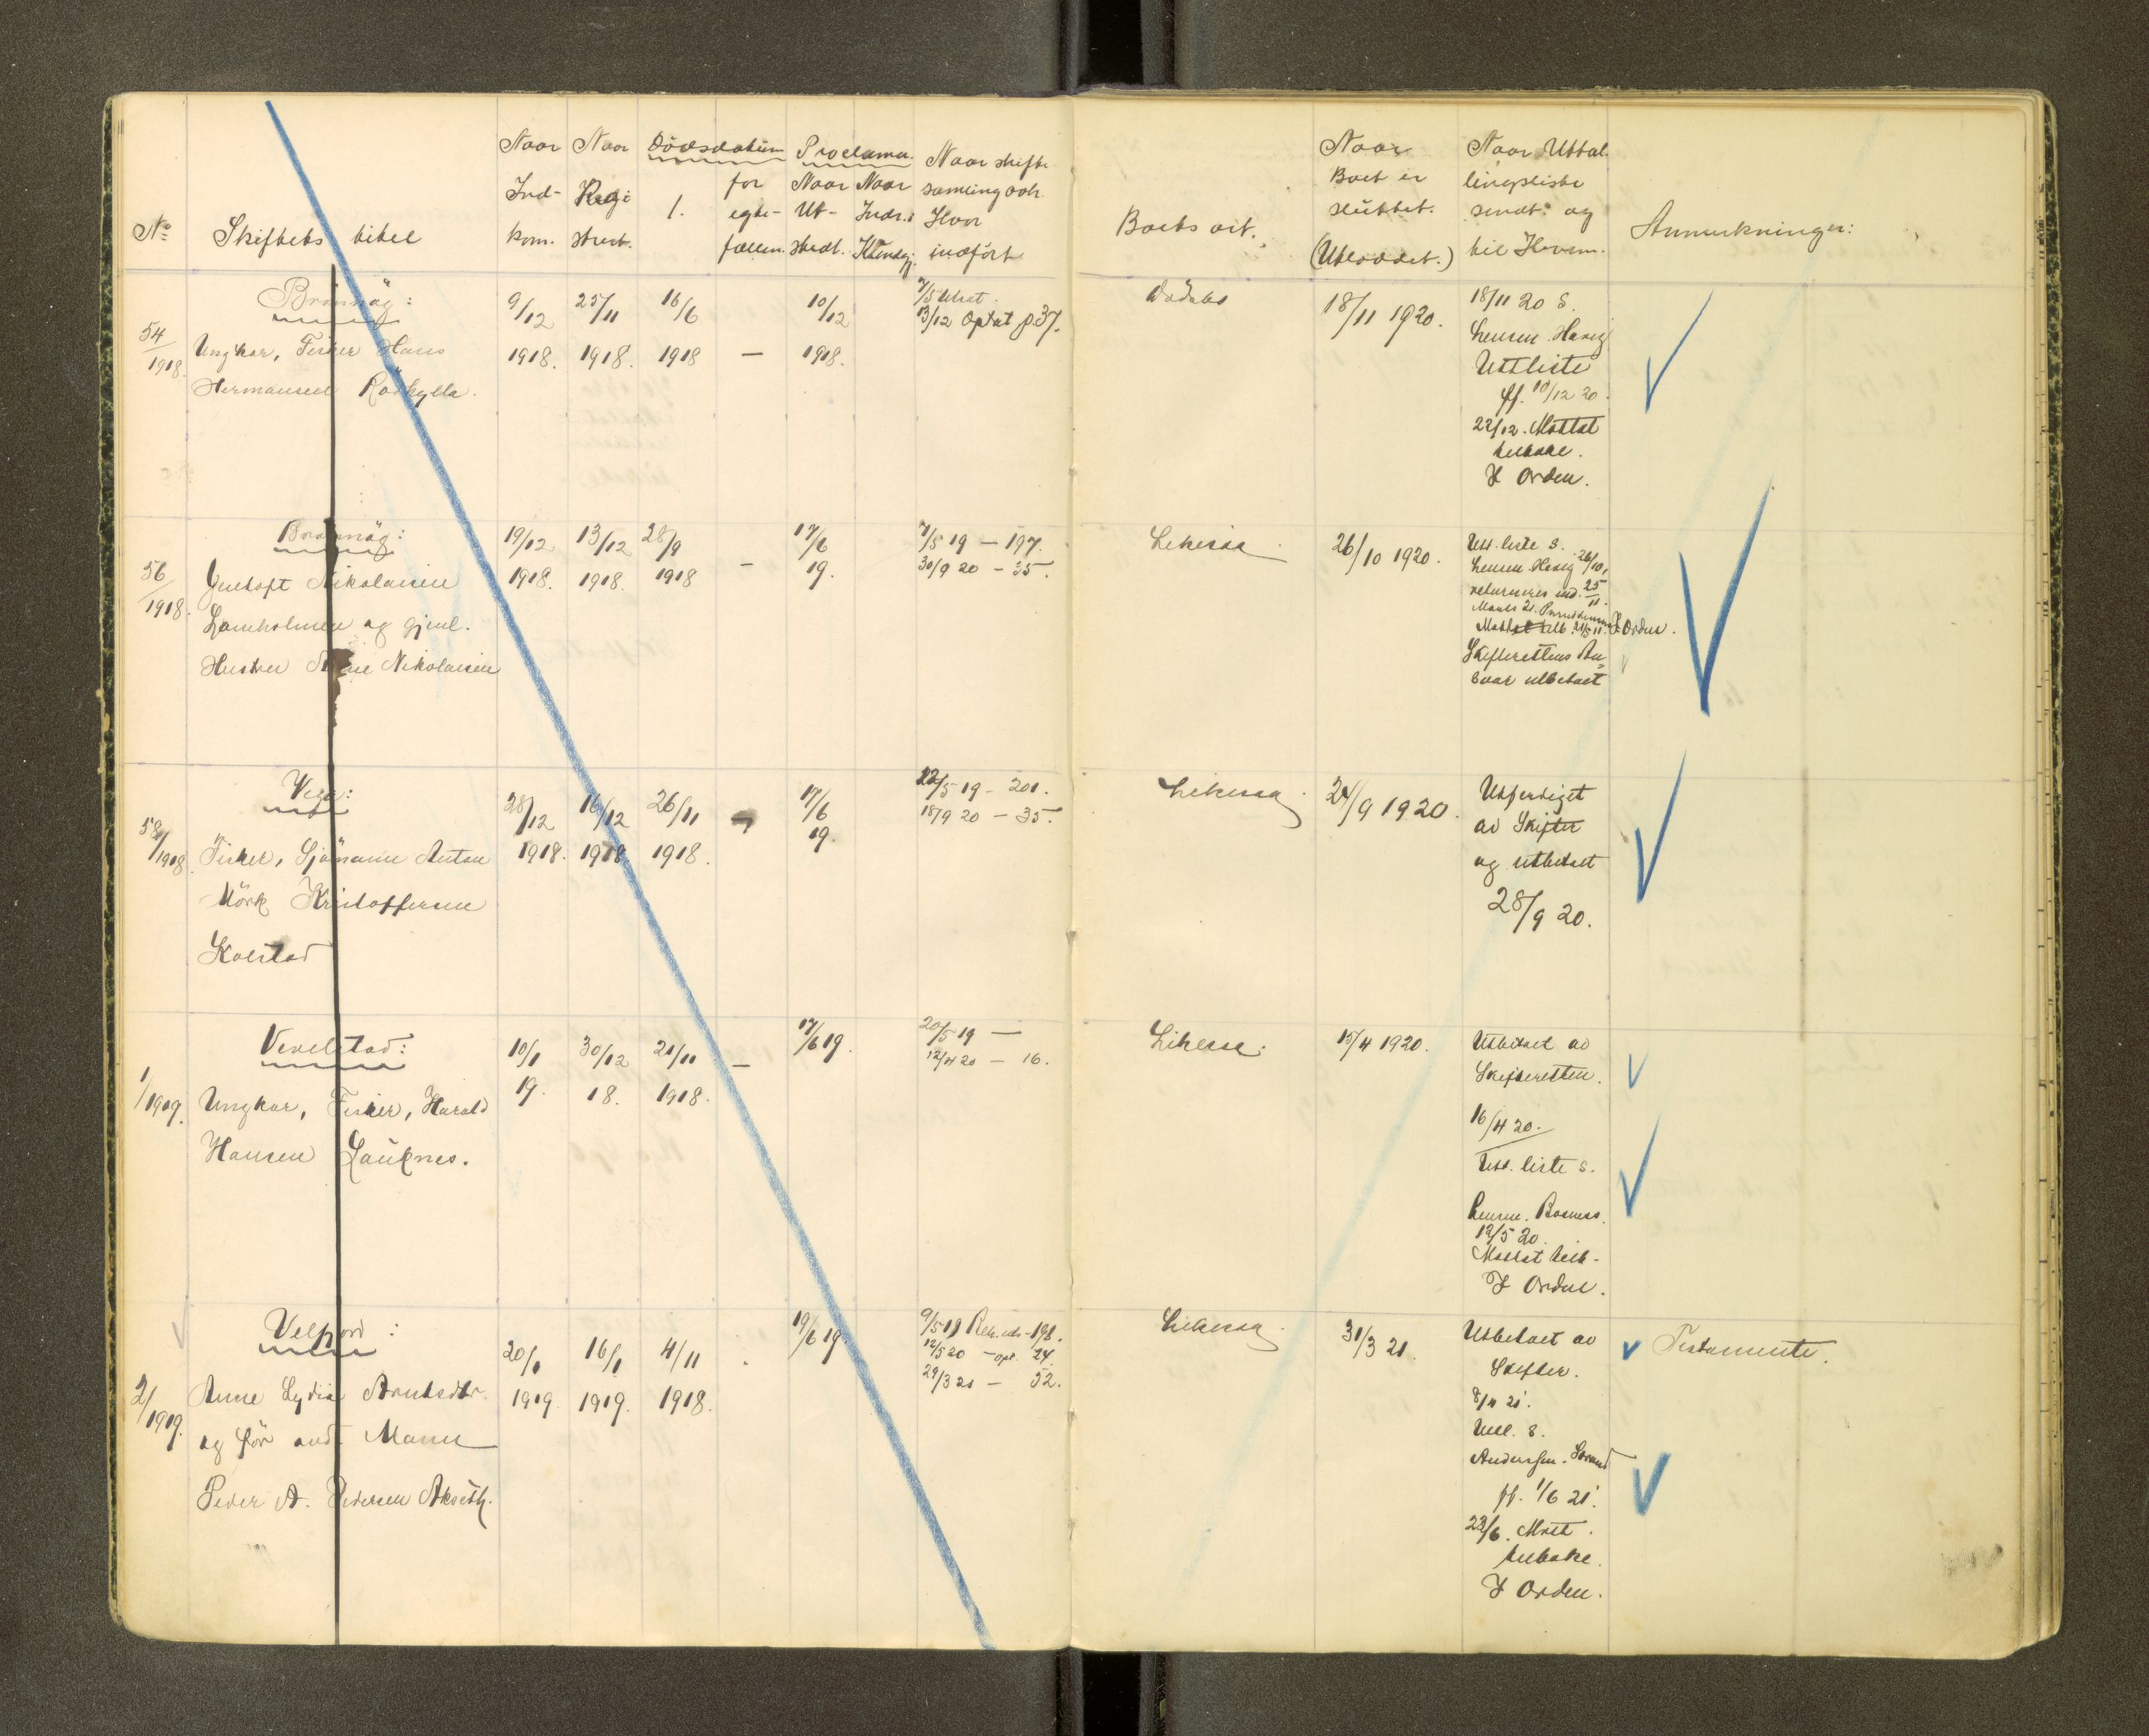 No
Skiftets titel
Naar
Ind-
kom.
Naar
Regi
strert.
Dödsdatum
1.
for
egte-
fællen.
Proclama.
Naar
Ut-
stedt.
Naar
Indr. i
Kundgj.
Naar skifte
samling och
Hvor
indført
Boets art.
Naar
Boet er
sluttet.
(Utloddet.)
Naar Uttal
lingsliste
sendt og
til Hvem.
Anmerkninger:
54/1918.
Brønnøy:
Ungkar, Fisker Hans
Hermansen
9/12
1918.
25/11
1918.
16/6
1918
—
10/12
1918.
7/5
13/12 Optat p 37.
Dødsbo
18/11 1920.
18/11 20 S.
Lensm. Havig
Uttliste
ff. 10/12 20.
22/12. Mottat
tilbake.
I Orden.
56/1918.
Brønnøy:
Nikolaisen
og gjenl.
Hustru Nikolaisen
19/12
1918.
13/12
1918.
28/9
1918
—
17/6
19.
7/5 19 — 197.
30/9 20 — 35.
26/10 1920.
Utt. liste S.
Lensm. Havig 26/10.
returneres ind. 25/11.
I Orden.
Skifterettens An-
svar utbetalt
58/1918.
Vega:
Fisker, Sjømann Anton
Mörk Kristoffersen
Kolstad
28/12
1918.
16/12
1918
26/11
1918.
17/6
19.
22/5 19 — 201.
18/9 20 — 35.
24/9 1920.
Utferdiget
av Skifter
og utbetalt
28/9 20.
1/1919.
Vevelstad:
Ungkar, Fisker, Harald
Hansen
10/1
19.
30/12
18.
21/11
1918.
—
17/6 19.
20/5 19 —
12/4 20 — 16.
15/4 1920.
Utbetalt av
Skifteretten.
16/4 20.
Utt. liste S.
Lensm.
12/5 20.
Mottat tilb.
I Orden.
2/1919.
Velfjord:
Anne Lydia Arntsdtr.
og før avd. Mann
Peder A. Pedersen
20/1
1919.
16/1
1919.
4/11
1918.
19/6 19.
9/5 19
12/5 20 — opt. 24.
29/3 21 — 52.
31/3 21.
Utbetalt av
Skifter.
8/4 21.
Andersen. Strand
ff. 1/6 21.
23/6. Mott.
tilbake.
I Orden.
Testamente.